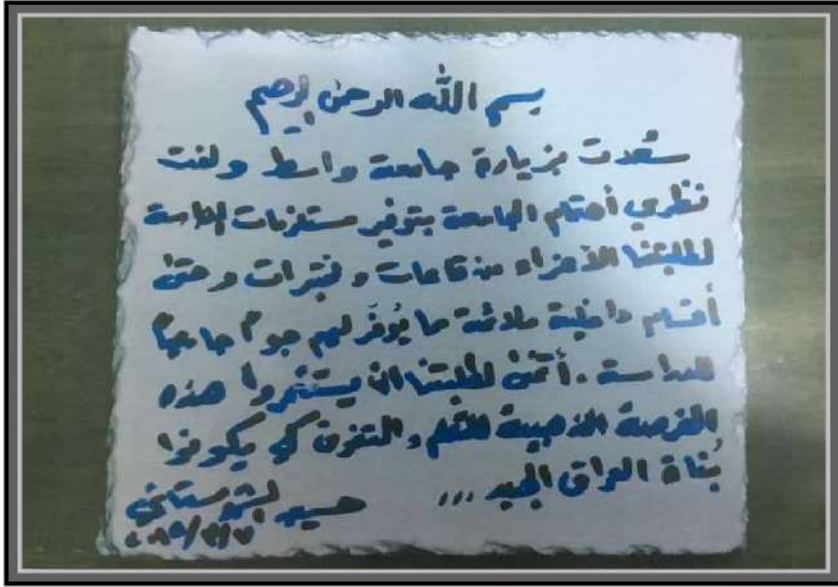 بسم الله الرحمن الرحيم
سُعدت بزيارة جامعة واسط ولفت
نظري أهتمام الجامعة بتوفير مستلزمات الدراسة
لطلبتنا الأعزاء من قاعات و مختبرات وحتى
أقسام داخلية ملائمة ما يُوفّر لهم جواً جامعياً
للدراسة . أتمنى لطلبتنا ان يستثمروا هذه
الفرصة الذهبية للتعلم والتفوق كي يكونوا
بُناة العراق الجديد ...
حسين الشهرستاني